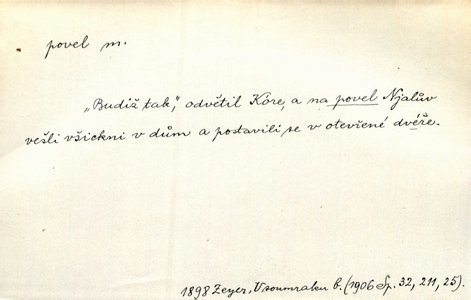 povel m.
„Budiž tak," odvětil Kóre, a na povel Njalův
vešli všickni v dům a postavili se v otevřené dvéře.
1898 Zeyer, V soumraku b. (1906 Sp. 32, 211, 25).